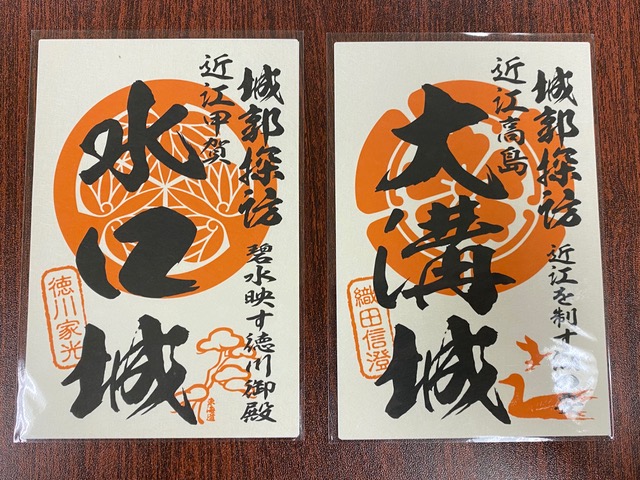 城郭探訪
近江甲賀
水口城
碧水映す徳川御殿
徳川家光
東海道
城郭探訪
近江高島
大溝城
近江を制す
織田信澄